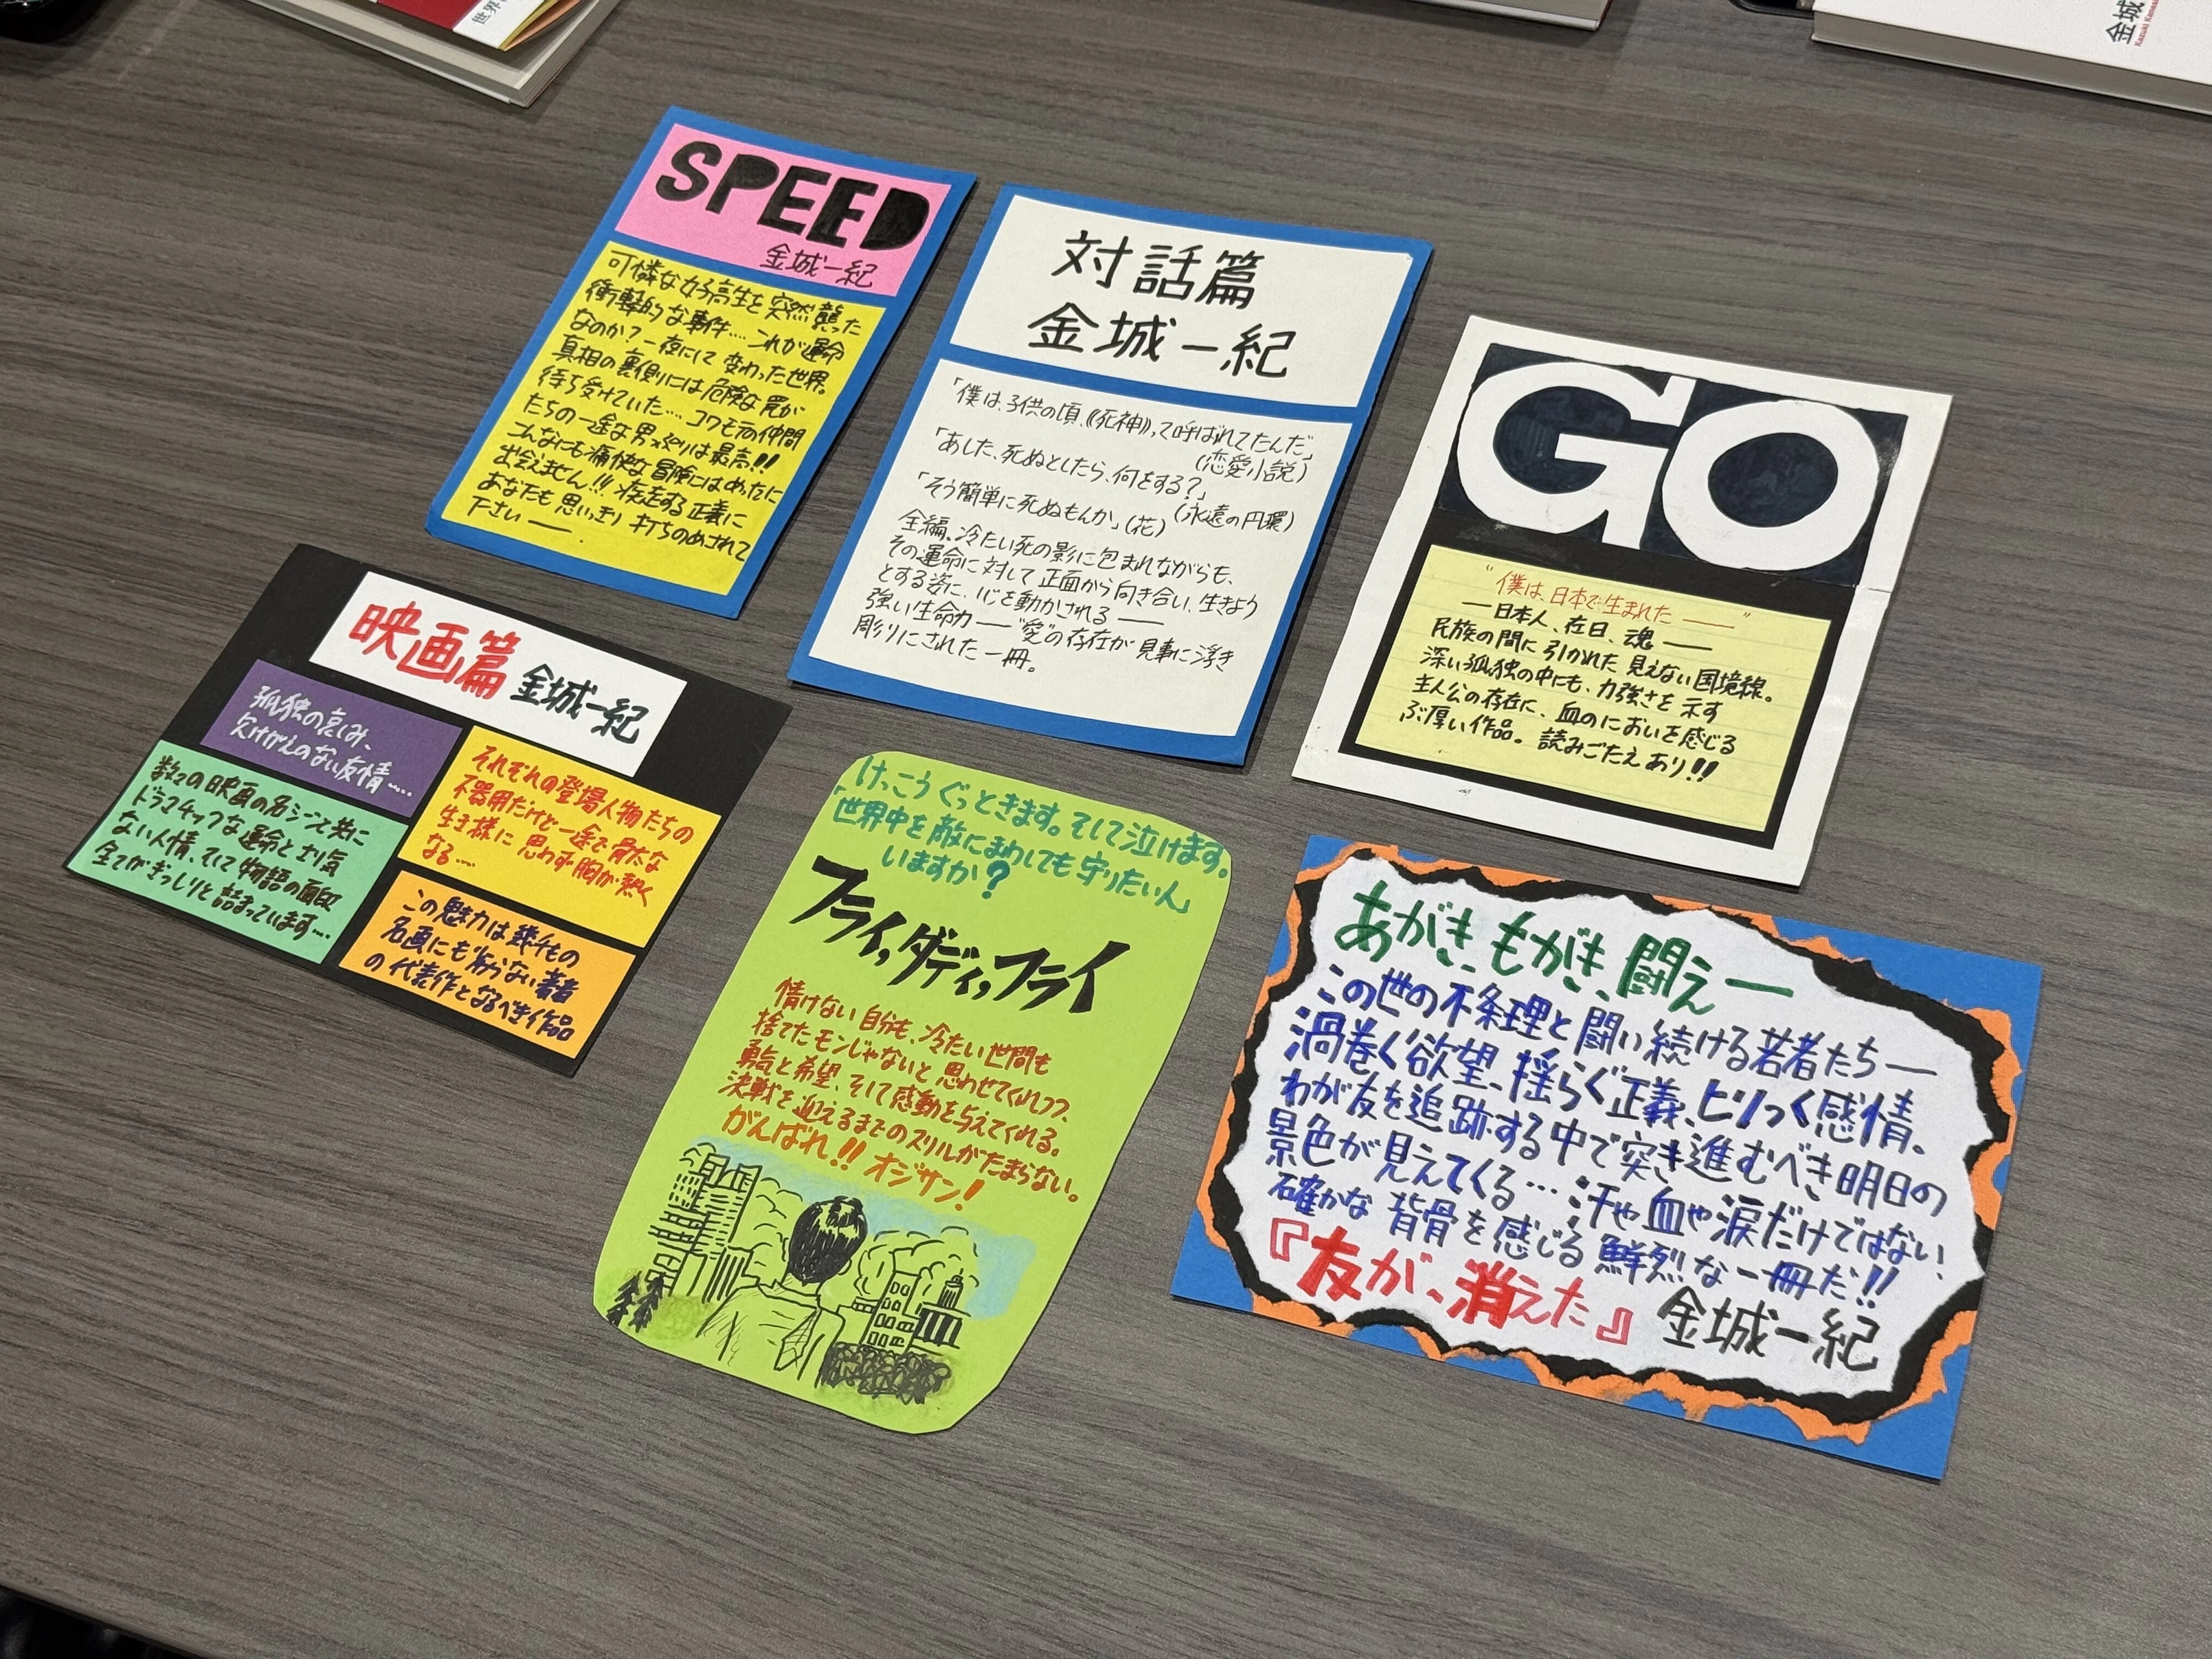 世界
金城
Kazuki Kane
SPEED
金城一紀
可憐な女子高生を突然襲った
衝撃的な事件…. これが運命
なのか？一夜にして変わった世界。
真相の裏側には危険な罠が
待ち受けていた…. コワモテの仲間
たちの一途な男っぷりは最高!!
こんなにも痛快な冒険にはめったに
出会えません!!! 疾走する正義に
あなたも思いっきり打ちのめされて
下さい――
対話篇
金城一紀
「僕は、子供の頃、《死神》って呼ばれてたんだ」
(恋愛小説)
「あした、死ぬとしたら、何をする?」
(永遠の円環)
「そう簡単に死ぬもんか」(花)
全編、冷たい死の影に包まれながらも、
その運命に対して正面から向き合い、生きよう
とする姿に、心を動かされる――
強い生命力――“愛”の存在が見事に浮き
彫りにされた一冊。
GO
“僕は、日本で生まれた――”
―日本人、在日、魂――
民族の間に引かれた見えない国境線。
深い孤独の中にも、力強さを示す
主人公の存在に、血のにおいを感じる
ぶ厚い作品。読みごたえあり!!
映画篇 金城一紀
孤独の哀しみ、
欠けがえのない友情….
数々の映画の名シーンと共に
ドラマチックな運命と
ない人情、そして物語の面白
全てがぎっしりと詰まっています….
それぞれの登場人物たちの
不器用だけど一途で骨太な
生き様に思わず胸が熱く
なる….
この魅力は幾千もの
名画にも劣らない著者
の代表作となるべき作品
けっこうぐっときます。そして泣けます。
「世界中を敵にまわしても守りたい人」
いますか?
フライ,ダディ,フライ
情けない自分も、冷たい世間も
捨てたモンじゃないと思わせてくれつつ、
勇気と希望、そして感動を与えてくれる。
決戦を迎えるまでのスリルがたまらない。
がんばれ!! オジサン!
あがき、もがき、闘え―
この世の不条理と闘い続ける若者たち―
渦巻く欲望、揺らぐ正義、ヒリつく感情、
わが友を追跡する中で突き進むべき明日の
景色が見えてくる…汗や血や涙だけではない
確かな背骨を感じる鮮烈な一冊だ!!
『友が、消えた』 金城一紀